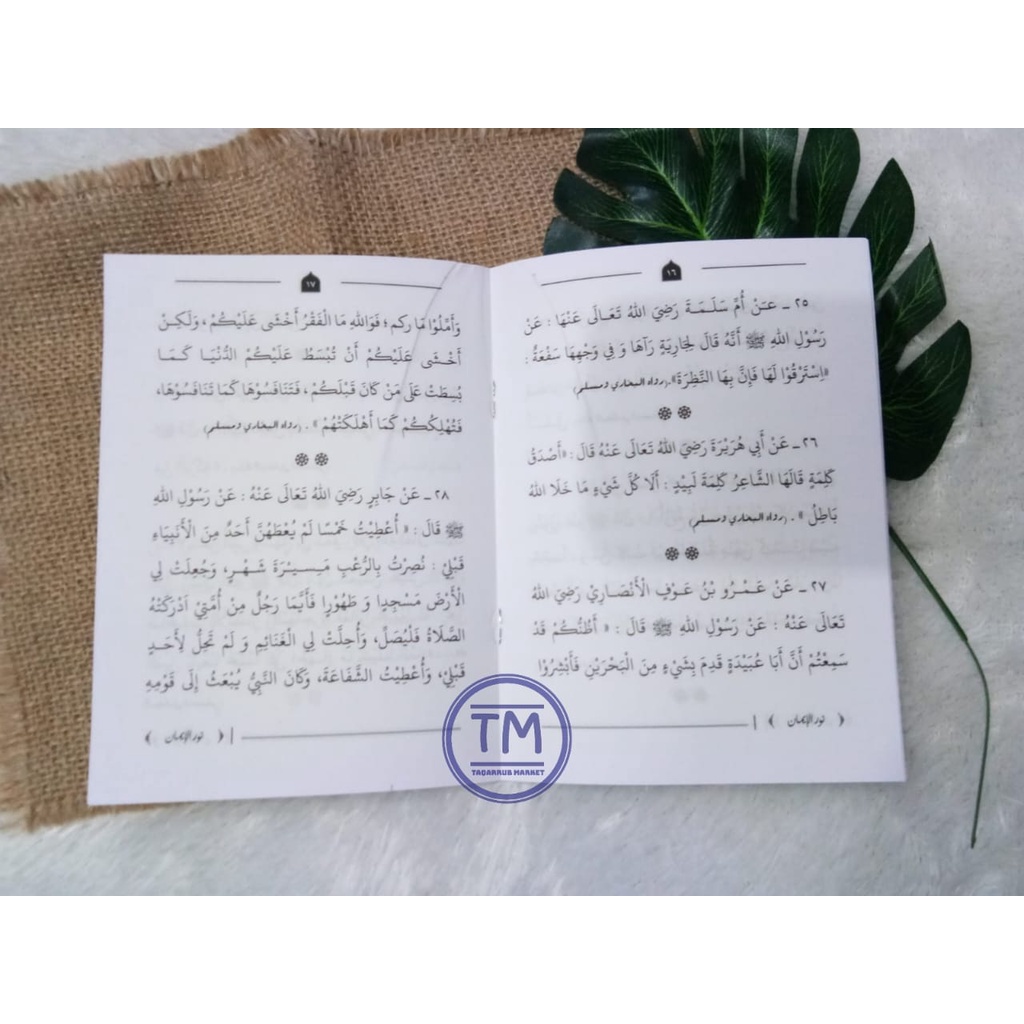 ١٦
٢٥ ـ عَـنْ أُمِّ سَلَـمَـةَ رَضِيَ اللهُ تَعَـالَى عَنْهَا : عَنْ
رَسُوْلِ اللهِ ﷺ أَنَّهُ قَالَ لِجَارِيَةٍ رَآهَا وَ فِي وَجْهِهَا سَفْعَةٌ :
«اِسْتَرْقُوْا لَهَا فَإِنَّ بِهَا النَّظِرَةَ». (رواه البخاري ومسلم)
٢٦ ـ عَنْ أَبِي هُرَيْرَةَ رَضِيَ اللهُ تَعَالَى عَنْهُ قَالَ : «أَصْدَقُ
كَلِمَةٍ قَالَهَا الشَّاعِرُ كَلِمَةُ لَبِيْدٍ : أَلَا كُلُّ شَيْءٍ مَا خَلَا اللهُ
بَاطِلُ» . (رواه البخاري ومسلم)
٢٧ ـ عَنْ عَمْـرِو بْنُ عَـوْفِ الْأَنْصَـارِيِّ رَضِيَ اللهُ
تَعَالَى عَنْهُ : عَنْ رَسُوْلِ اللهِ ﷺ قَالَ : « أَظُنُّكُمْ قَدْ
سَمِعْتُمْ أَنَّ أَبَا عُبَيْدَةٍ قَدِمَ بِشَيْءٍ مِنَ الْبَحْرَيْنِ فَأَبْشِرُوْا
﴿ نور الإيمان ﴾
١٧
وَأَمِّلُوْا مَا ركم ؛ فَوَاللهِ مَا الْفَقْرُ أَخْشَى عَلَيْكُمْ ، وَلَكِـنْ
أَخْشَى عَلَيْكُمْ أَنْ تُبْسَطَ عَلَيْكُمُ الدُّنْيَـا كَـمَـا
بُسِطَتْ عَلَى مَنْ كَانَ قَبْلَكُمْ ، فَتَنَافَسُوْهَا كَمَا تَنَافَسُوْهَا ،
فَتُهْلِكُكُمْ كَمَا أَهْلَكَتْهُمْ » . (رواه البخاري ومسلم)
٢٨ ـ عَنْ جَابِرٍ رَضِيَ اللهُ تَعَالَى عَنْهُ : عَنْ رَسُوْلِ اللهِ
ﷺ قَالَ : « أُعْطِيْتُ خَمْسًا لَمْ يُعْطَهُنَّ أَحَدٌ مِنَ الْأَنْبِيَاءِ
قَبْلِيْ : نُصِرْتُ بِالرُّعْبِ مَـسِيْـرَةَ شَـهْـرٍ، وَجُعِلَتْ لِي
الْأَرْضُ مَسْجِدًا وَ طَهُوْرًا فَأَيُّمَا رَجُلٌ مِنْ أُمَّتِيْ اَدْرَكَتْهُ
الصَّلَاةُ فَلْيُصَلِّ، وَأُحِلَّتْ لِي الْغَنَائِمِ وَ لَمْ تَحِلُّ لِأَحَدٍ
قَبْلِيْ، وَأُعْطِيْتُ الشَّفَاعَةَ، وَكَانَ النَّبِيُّ يُبْعَثُ إِلَى قَوْمِهِ
﴿ نور الإيمان ﴾
TM
TAQARRUB MARKET